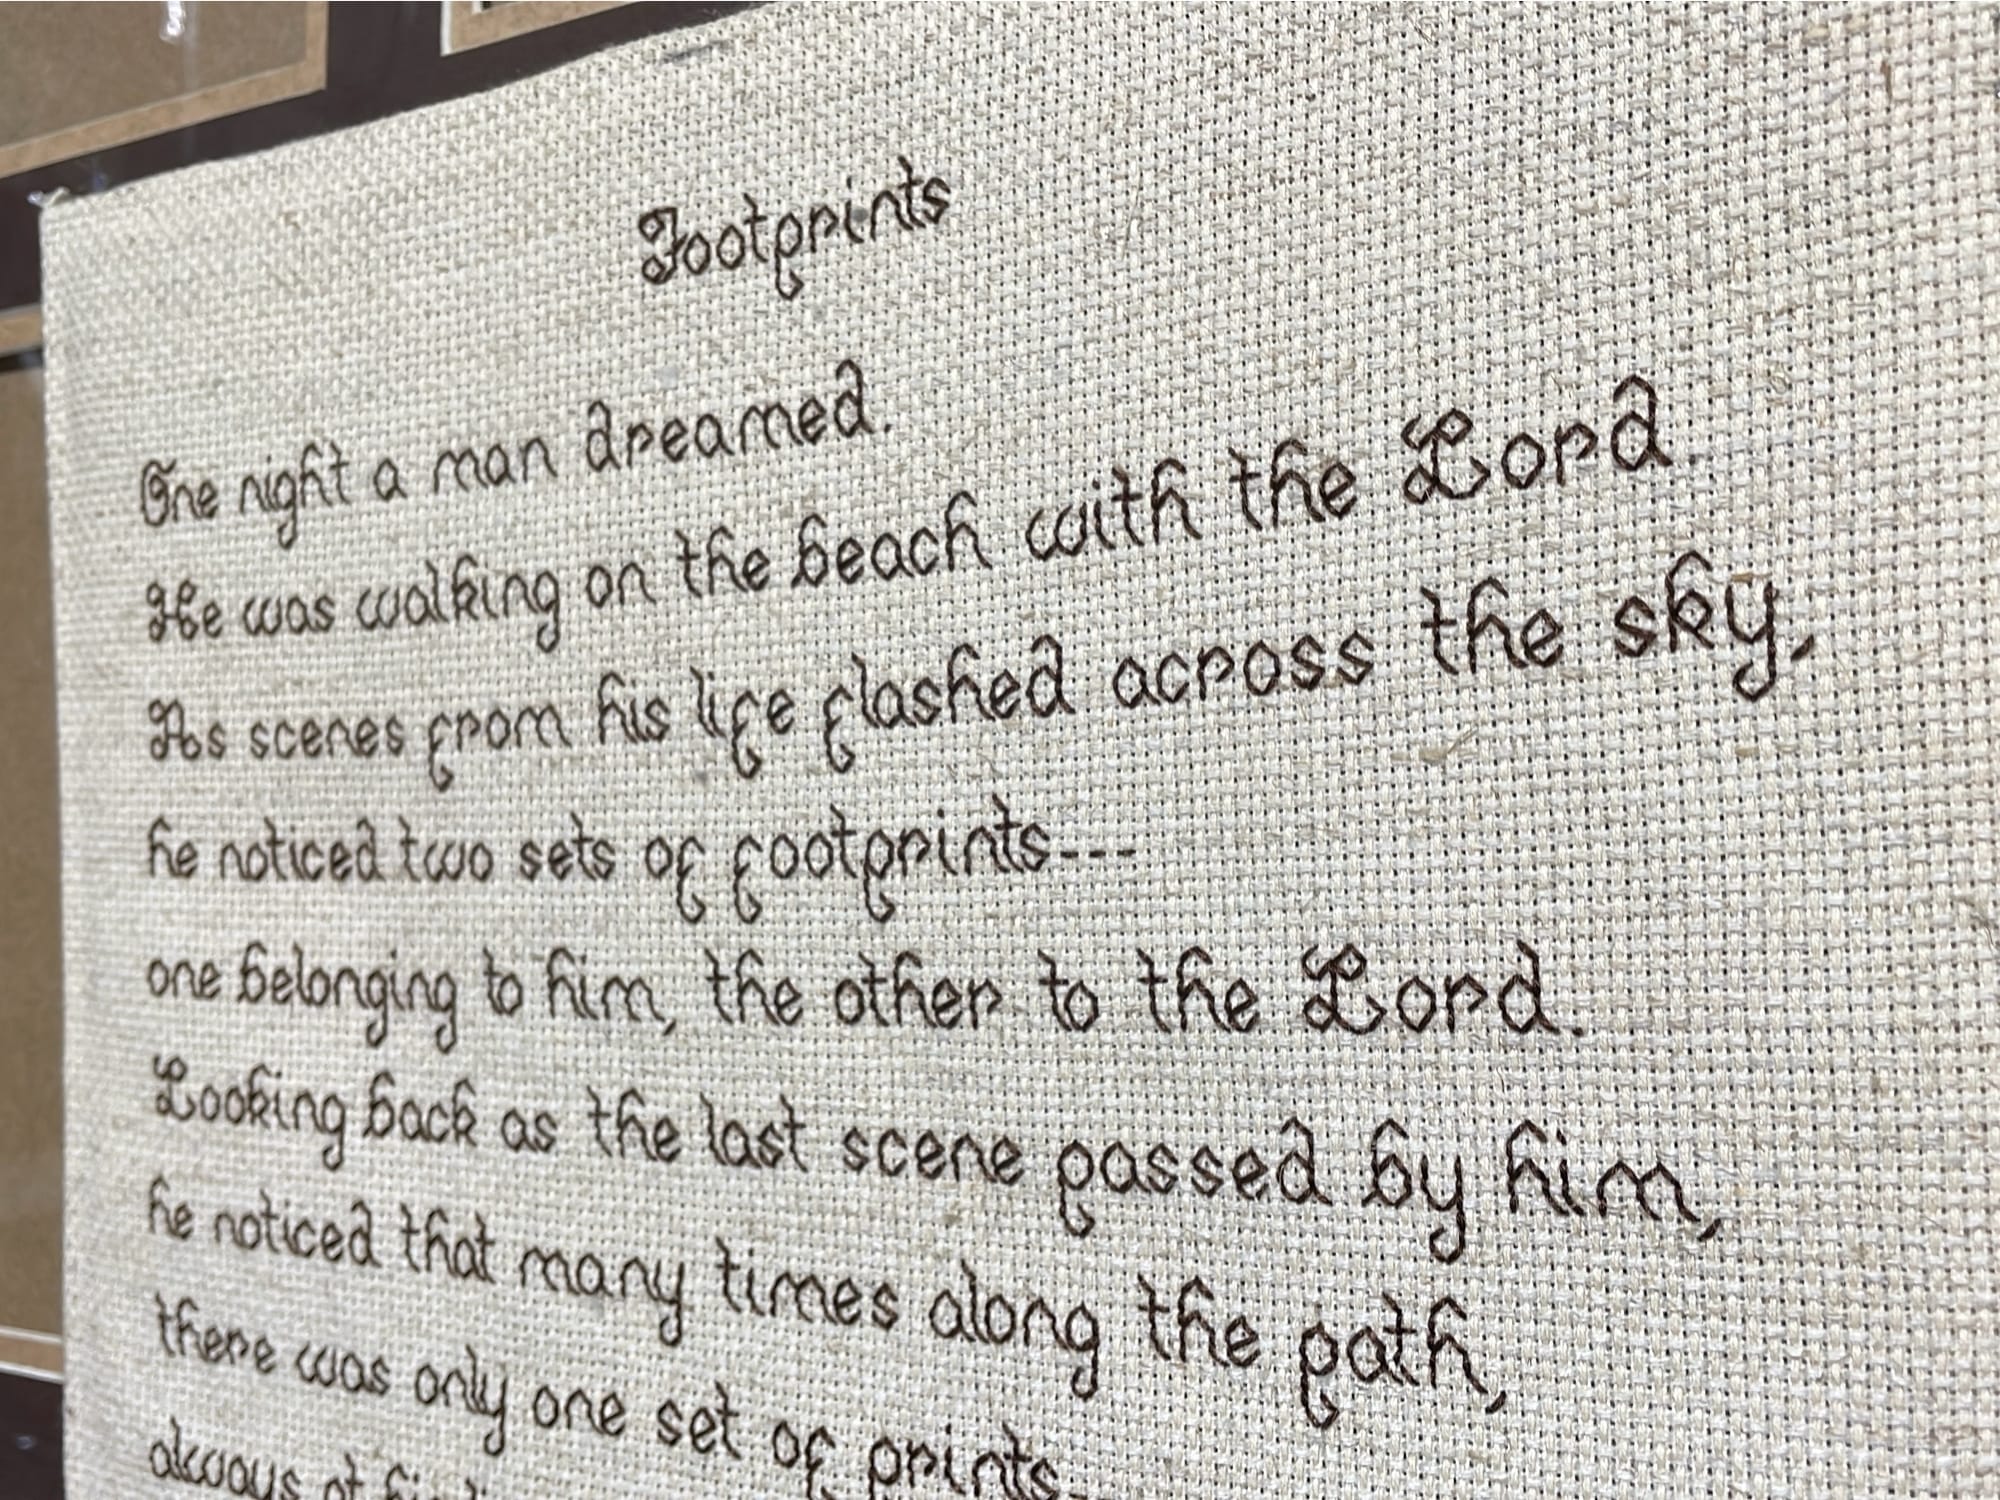 Footprints
One night a man dreamed.
He was walking on the beach with the Lord.
As scenes from his life flashed across the sky,
he noticed two sets of footprints---
one belonging to him, the other to the Lord.
Looking back as the last scene passed by him,
he noticed that many times along the path,
there was only one set of prints--
always at